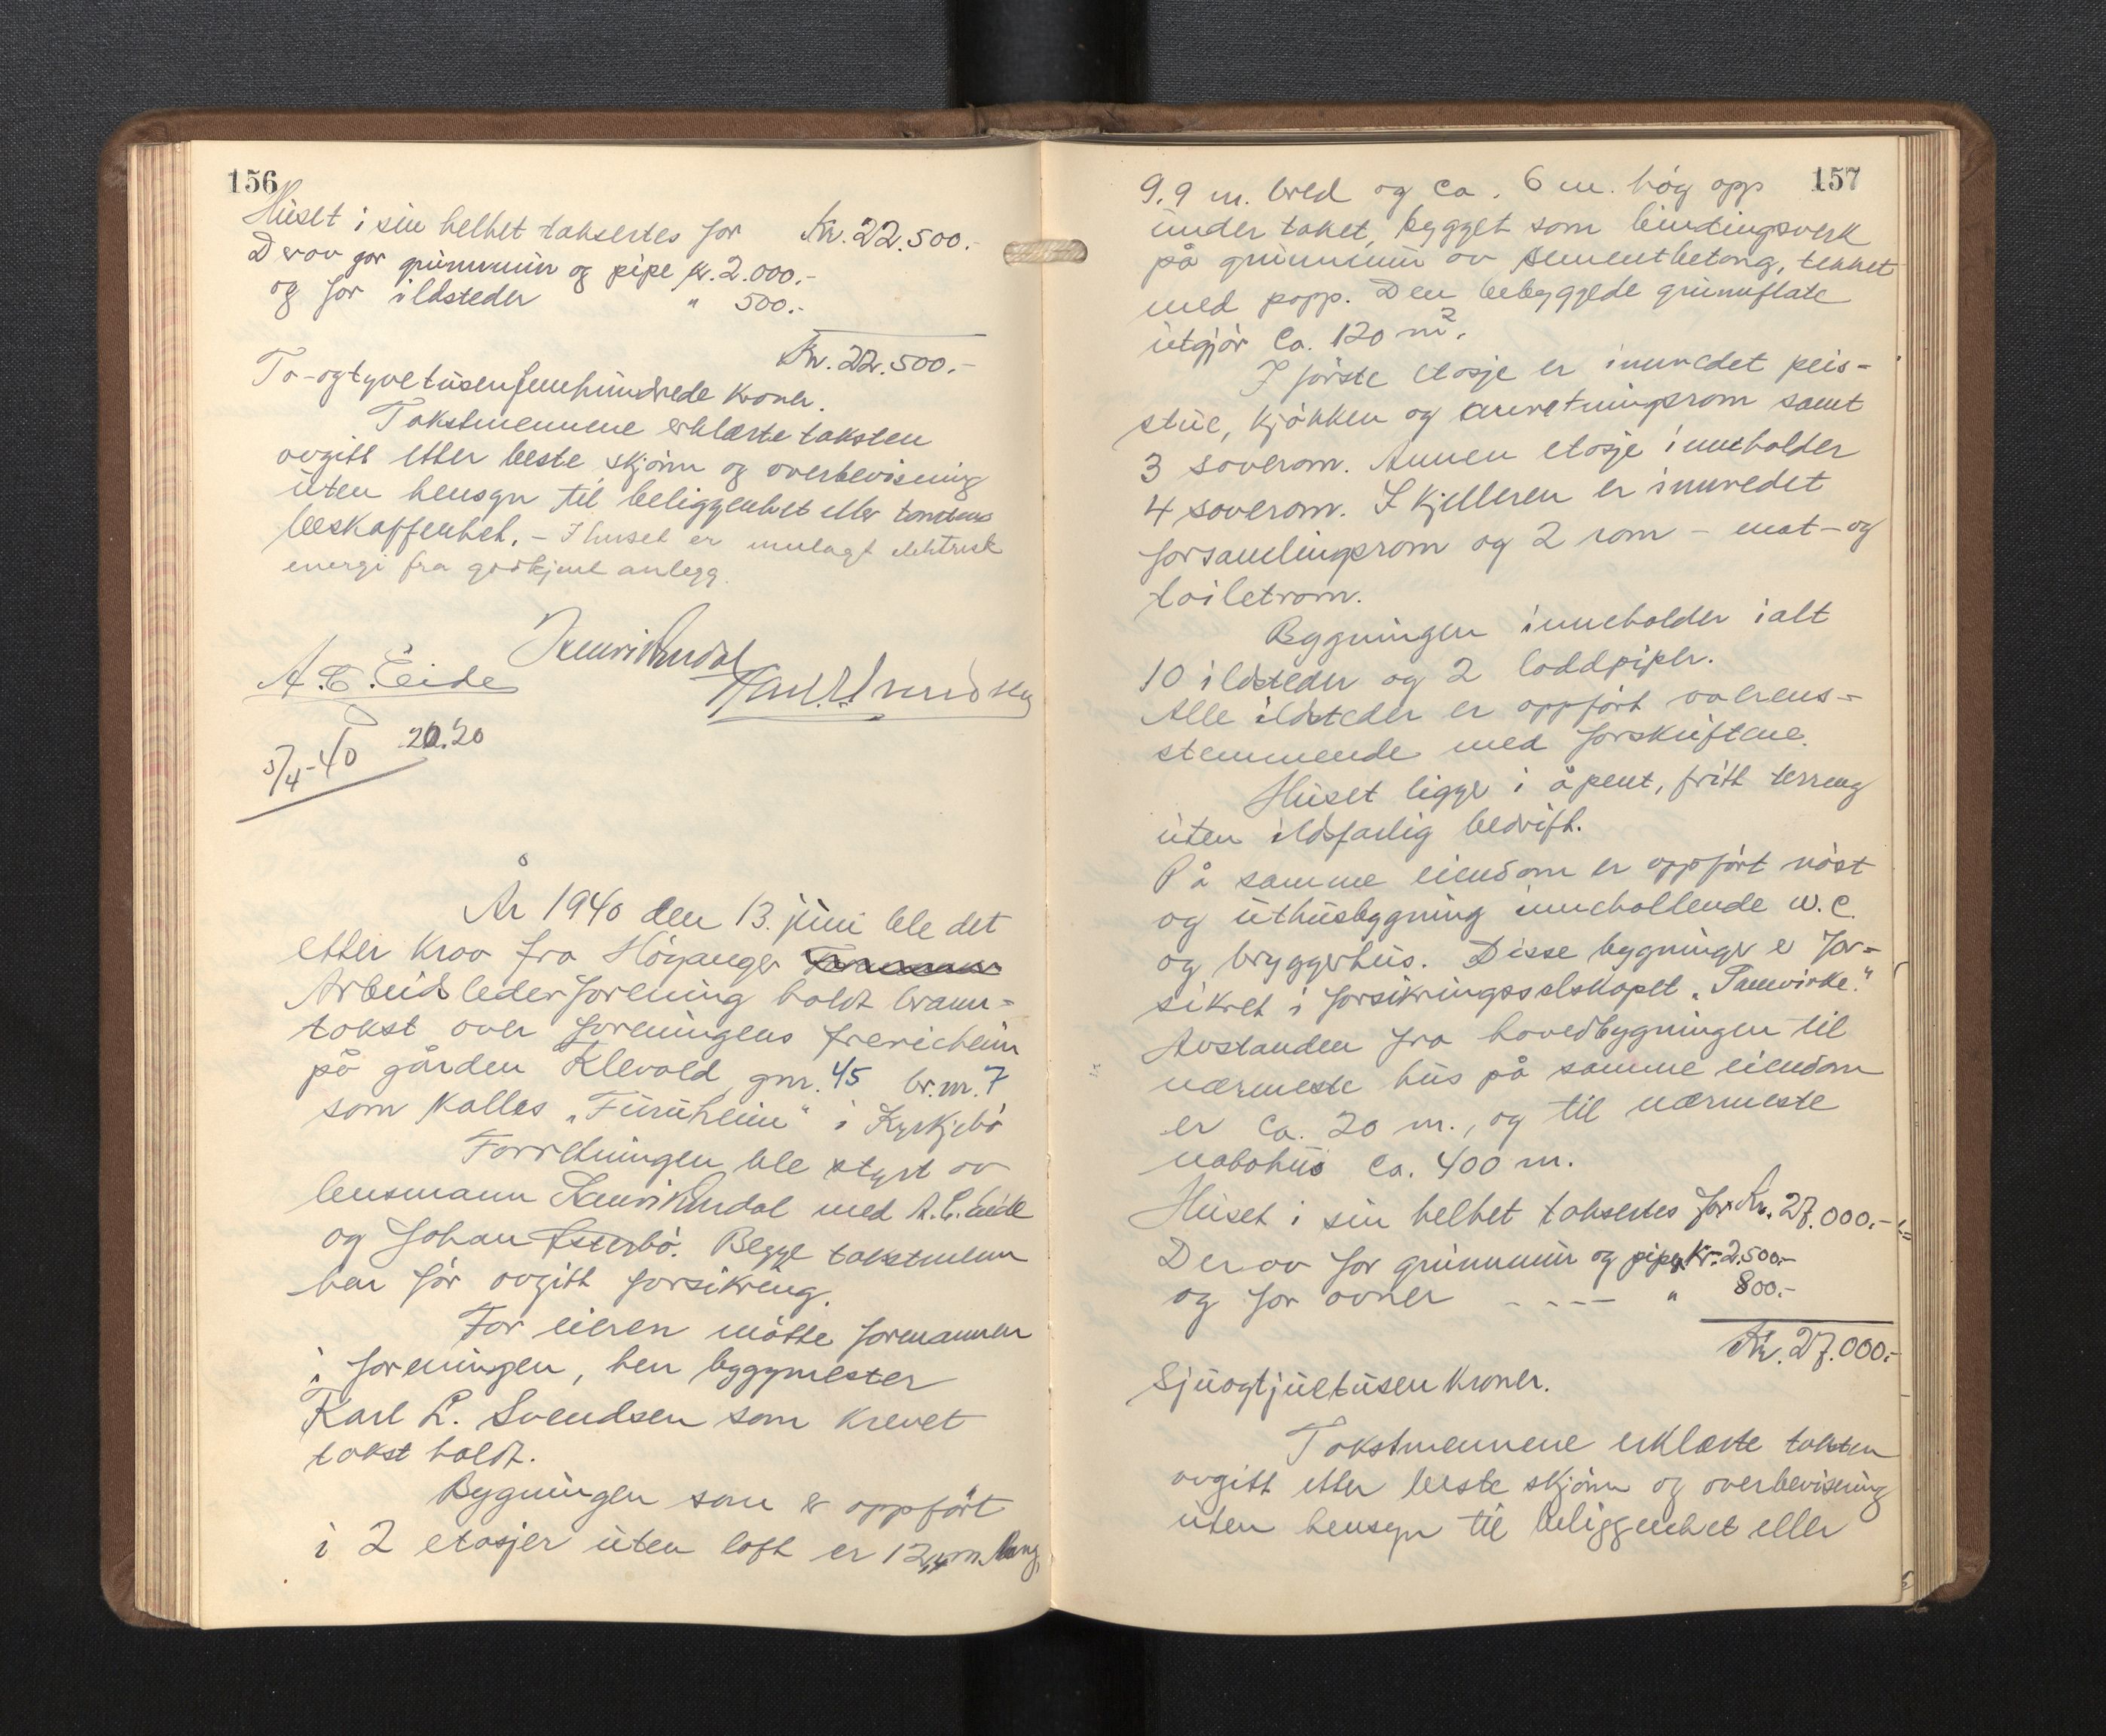 156
Huset i sin helhet taksertes for Kr. 22.500.-
Derav for grunnmur og pipe kr. 2.000.-
og for ildsteder " 500.-
Kr. 22.500.-
To-ogtyvetusenfemhundrede kroner.
Takstmennene erklærte taksten
avgitt etter beste skjönn og overbevisning
uten hensyn til beliggenhet eller tomtens
beskaffenhet. - I huset er innlagt elektrisk
energi fra godkjent anlegg.
A. C. Eide
5/4-40 20.20
År 1940 den 13. juni ble det
etter krav fra Höyanger
Arbeidslederforening holdt brann-
takst over foreningens frericheim
på gården Klevold gnr. 45 br.nr. 7
som kalles "Furuheim" i Kyrkjebö
Forretningen ble styrt av
lensmann med A. C. Eide
og Johan Österbö. Begge takstmenn
har för avgitt forsikring.
For eieren mötte formannen
i foreningen, herr byggmester
Karl L. Svendsen som krevet
takst holdt.
Bygningen som er oppfört
i 2 etasjer uten loft er 12,4 m. lang,
157
9,9 m. bred og ca. 6 m. höy opp
under taket, bygget som bindingsverk
på grunnmur av sementbetong, tekket
med papp. Den bebyggede grunnflate
utgjör ca. 120 m².
I förste etasje er innredet peis-
stue, kjökken og anretningsrom samt
3 soverom. Annen etasje inneholder
4 soverom. I kjelleren er innredet
forsamlingsrom og 2 rom - mat- og
toiletrom.
Bygningen inneholder ialt
10 ildsteder og 2 loddpiper.
Alle ildsteder er oppfört overens-
stemmende med forskriftene.
Huset ligger i åpent, fritt terreng
uten ildsfarlig bedrift.
På samme eiendom er oppfört nöst
og uthusbygning inneholdende w.c.
og bryggerhus. Disse bygninger er for-
sikret i forsikringsselskapet "Samvirke."
Avstanden fra hovedbygningen til
nærmeste hus på samme eiendom
er ca. 20 m., og til nærmeste
nabohus ca. 400 m.
Huset i sin helhet taksertes for Kr. 27.000.-
Derav for grunnmur og piper Kr. 2.500.-
og for ovner - - - - " 800.-
Kr. 27.000.-
Sjuogtjuetusen kroner.
Takstmennene erklærte taksten
avgitt etter beste skjönn og overbevisning
uten hensyn til beliggenhet eller